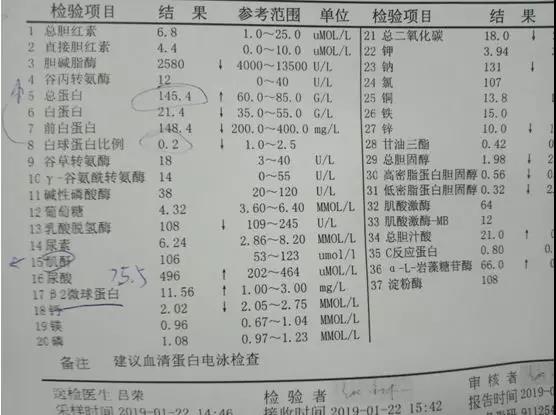 检验项目 结果 参考范围 单位
1 总胆红素 6.8 1.0～25.0 uMOL/L
2 直接胆红素 4.4 0.0～10.0 uMOL/L
3 胆碱脂酶 2580 ↓ 4000～13500 U/L
4 谷丙转氨酶 12 0～40 U/L
5 总蛋白 145.4 ↑ 60.0～85.0 G/L
6 白蛋白 21.4 ↓ 35.0～55.0 G/L
7 前白蛋白 148.4 ↓ 200.0～400.0 mg/L
8 白球蛋白比例 0.2 ↓ 1.0～2.5
9 谷草转氨酶 18 3～40 U/L
10 γ-谷氨酰转氨酶 14 0～55 U/L
11 碱性磷酸酶 38 20～120 U/L
12 葡萄糖 4.32 3.60～6.40 MMOL/L
13 乳酸脱氢酶 108 ↓ 109～245 U/L
14 尿素 6.24 2.86～8.20 MMOL/L
15 肌酐 106 53～123 umol/l
16 尿酸 496 ↑ 202～464 uMOL/L
17 β2微球蛋白 11.56 ↑ 1.00～3.00 mg/L
18 钙 2.02 ↓ 2.05～2.75 MMOL/L
19 镁 0.96 0.67～1.04 MMOL/L
20 磷 1.08 0.97～1.23 MMOL/L
检验项目 结果
21 总二氧化碳 18.0 ↓
22 钾 3.94
23 钠 131 ↓
24 氯 107
25 铜 13.8
26 铁 15.0
27 锌 10.0 ↓
28 甘油三酯 0.42
29 总胆固醇 1.98 ↓
30 高密脂蛋白胆固醇 0.56 ↓
31 低密脂蛋白胆固醇 0.32 ↓
32 肌酸激酶 64
33 肌酸激酶-MB 12
34 总胆汁酸 21.0 ↑
35 C反应蛋白 0.80
36 α-L-岩藻糖苷酶 66.0 ↑
37 淀粉酶 108
备注 建议血清蛋白电泳检查
送检医生 吕荣 检验者 审核者
采样时间 2019-01-22 14:46 接收时间 2019-01-22 15:42 报告时间 2019-0